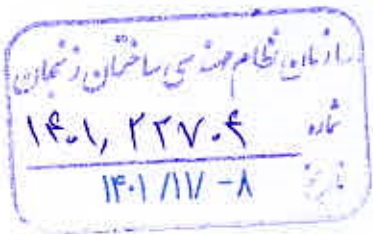 سازمان نظام مهندسی ساختمان زنجان
شماره ۱۴۰۱, ۲۲۷۰۴
تاریخ ۱۴۰۱/۱۱/-۸